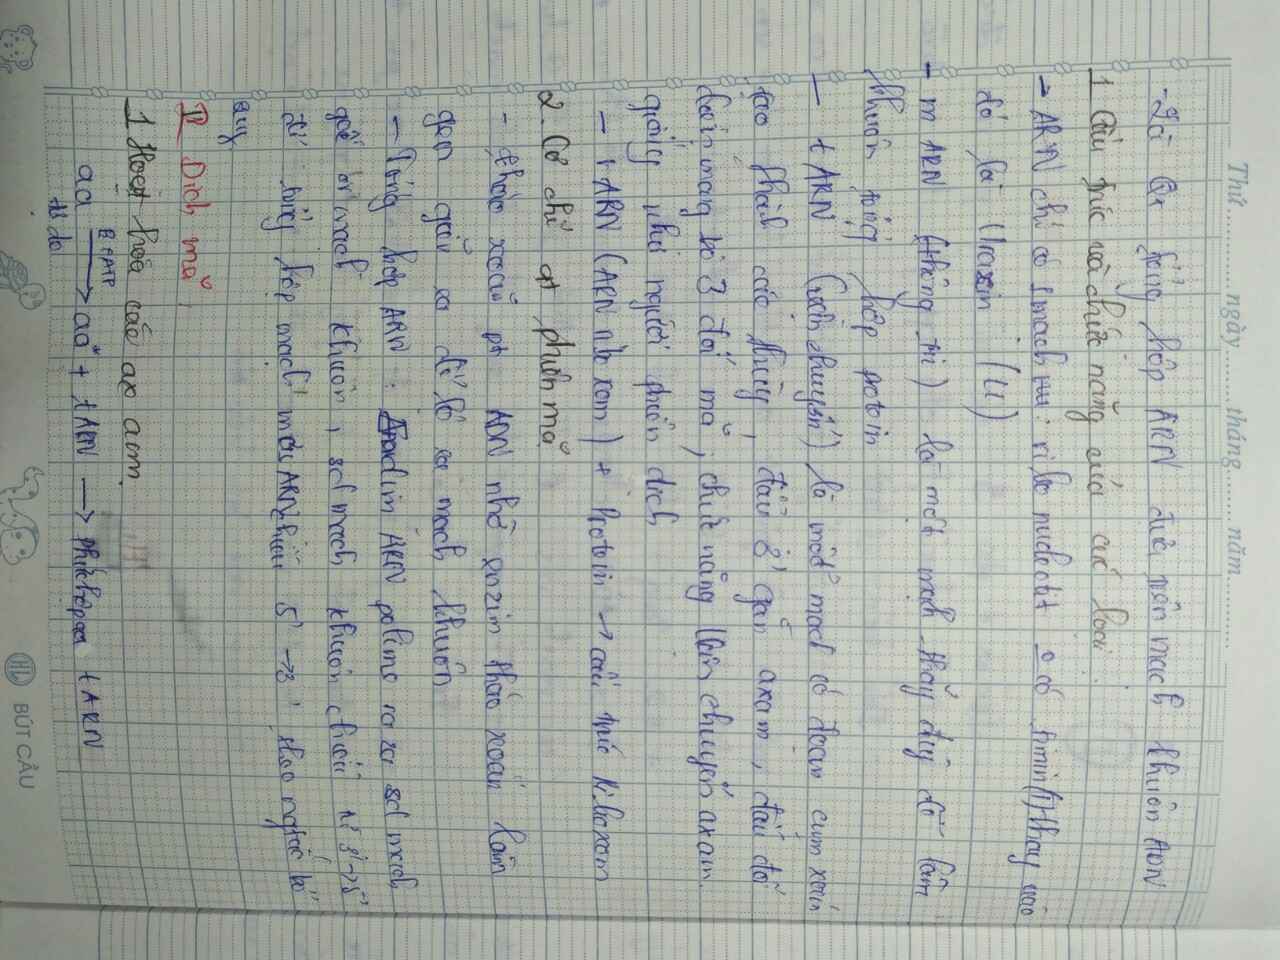 Thứ ........ ngày ........ tháng ........ năm ........
- Là Qt tổng hợp ARN dựa trên mạch khuôn ADN
1 Cấu trúc và chức năng của các loại.
- ARN chỉ có 1 mạch nu: ribo nucleotit o có timin(T) thay vào
đó là Uraxin (U)
- mARN (thông tin) là một mạch thẳng để làm
khuôn tổng hợp protein
- tARN (vận chuyển) là một mạch có đoạn cuộn xoắn
tạo thành các thùy, đầu 3' gắn axam, đầu đối
diện mang bộ 3 đối mã, chức năng vận chuyển axam.
giống như người phiên dịch
- rARN (ARN riboxom) + Protein → cấu trúc Riboxom
2. Cơ chế phiên mã
- tháo xoắn pt ADN nhờ enzim tháo xoắn làm
gen giãn ra để lộ ra mạch khuôn
- Tổng hợp ARN: Enzim ARN polime raza sd mạch
gốc làm mạch khuôn, sd mạch khuôn chiều từ 3'→5'
để tổng hợp mạch mới ARN chiều 5'→3' theo nguyên tắc bổ
sung
II Dịch mã.
1 Hoạt hoá các ax amin.
aa → aa* + tARN → Phức hợp aa tARN
tự do
ATP
HL BÚT CÂU